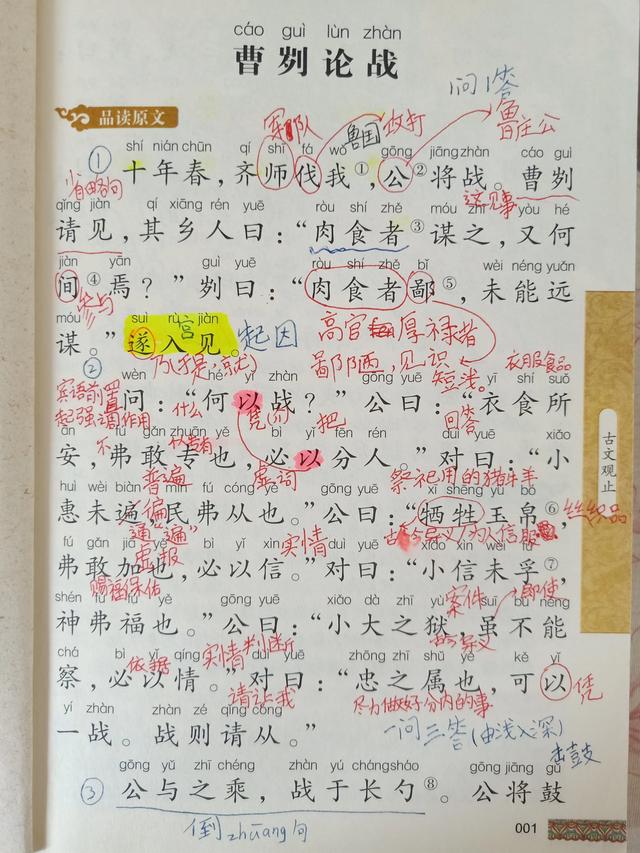 cáo guì lùn zhàn
曹刿论战
1问1答
品读原文
军队 鲁国 攻打 鲁庄公
shí nián chūn qí shī fá wǒ gōng jiāng zhàn cáo guì
① 十年春，齐师伐我①，公②将战。曹刿
省略句 这见事
qǐng jiàn qí xiāng rén yuē ròu shí zhě móu zhī yòu hé
请见，其乡人曰：“肉食者③谋之，又何
jiàn yān guì yuē ròu shí zhě bǐ wèi néng yuǎn
间④焉？”刿曰：“肉食者鄙⑤，未能远
参与
móu suì rù jiàn
谋。”遂入见。
宫 起因 高官厚禄者
② 乃(于是，就) 鄙陋，见识短浅。 衣服食品
wèn hé yǐ zhàn gōng yuē yī shí suǒ
问：“何以战？”公曰：“衣食所
宾语前置 起强调作用 什么 凭(介) 把 回答
ān fú gǎn zhuān yě bì yǐ fēn rén duì yuē xiǎo
安，弗敢专也，必以分人。”对曰：“小
不 普遍 虚词 祭祀用的猪牛羊
huì wèi biàn mín fú cóng yě gōng yuē xī shēng yù bó
惠未遍，民弗从也。”公曰：“牺牲玉帛⑥，
遍 通“遍” 丝织品
fú gǎn jiā yě bì yǐ xìn duì yuē xiǎo xìn wèi fú
弗敢加也，必以信。”对曰：“小信未孚⑦，
虚报 实情 为人信服
shén fú fú yě gōng yuē xiǎo dà zhī yù suī bù néng
神弗福也。”公曰：“小大之狱，虽不能
赐福保佑 案件 即使
chá bì yǐ qíng duì yuē zhōng zhī shǔ yě kě yǐ
察，必以情。”对曰：“忠之属也，可以
依据 实情判断 凭
请让我 尽力做好分内的事
yí zhàn zhàn zé qǐng cóng
一战。战则请从。”
一问三答(由浅入深)
击鼓
gōng yǔ zhī chéng zhàn yú cháng sháo gōng jiāng gǔ
③ 公与之乘，战于长勺⑧。公将鼓
倒zhuāng句
古文观止
001